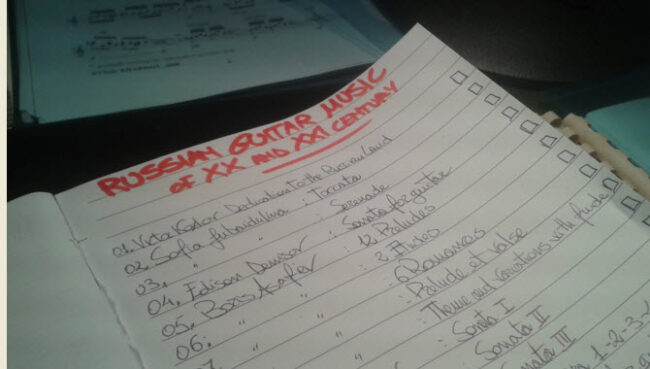 RUSSIAN GUITAR MUSIC
OF XX AND XXI CENTURY
01. Victor Kozlov Dedication to the Russian Land
02. Sofia Gubaidulina : Toccata
03. " " : Serenade
04. Edison Denisov : Sonata for guitar
05. Boris Asafiev : 12 Preludes
06. " " : 2 Etudes
07. " " : 6 Romances
" " : Prelude et Valse
" " : Theme and Variations with fugue
: Sonata I
Sonata II
Sonata III
1-2-3-